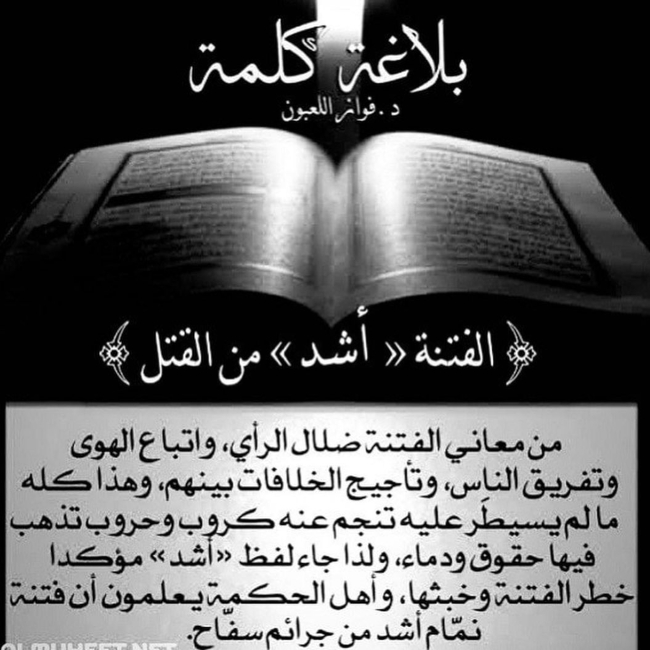 بلاغة كلمة
د.فواز اللعبون
﴿ الفتنة « أشد » من القتل ﴾
من معاني الفتنة ضلال الرأي، واتباع الهوى
وتفريق الناس، وتأجيج الخلافات بينهم، وهذا كله
ما لم يسيطَر عليه تنجم عنه كروب وحروب تذهب
فيها حقوق ودماء، ولذا جاء لفظ «أشد» مؤكدا
خطر الفتنة وخبثها، وأهل الحكمة يعلمون أن فتنة
نمّام أشد من جرائم سفّاح.
ALMUHEET.NET